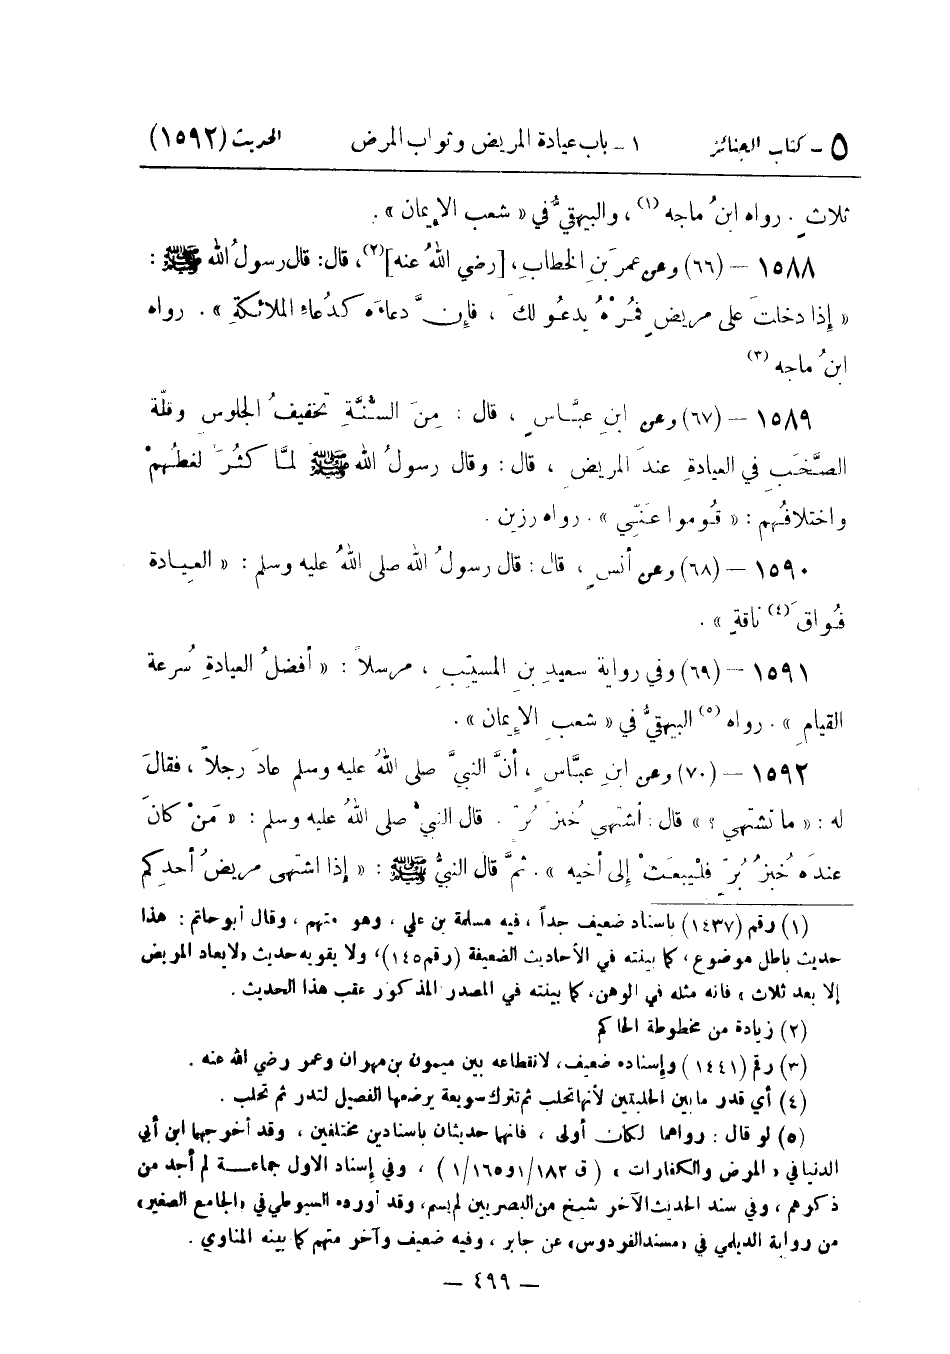 ٥ - كتاب الجنائز ١ - باب عيادة المريض وثواب المرض الحديث (١٥٩٢)
ثلاثٍ . رواه ابنُ ماجه (١) ، والبيهقيُّ في « شعب الإيمان » .
١٥٨٨ – (٦٦) وعن عمرَ بنِ الخطابِ، [رضي اللهُ عنه](٢)، قال: قال رسولُ الله ﷺ :
« إذا دخلتَ على مريضٍ فمُرْهُ يدعُو لكَ ، فإنَّ دعاءَه كدُعاءِ الملائكةِ » . رواه
ابنُ ماجه (٣)
١٥٨٩ – (٦٧) وعن ابنِ عبَّاسٍ ، قال : مِنَ السُّنَّةِ تخفيفُ الجلوسِ وقلَّة
الصَّخَبِ في العيادةِ عندَ المريضِ ، قال : وقال رسولُ الله ﷺ لمَّا كثُرَ لغطُهمْ
واختلافُهم : « قُوموا عنّي » . رواه رزين .
١٥٩٠ – (٦٨) وعن أنسٍ ، قال : قال رسولُ الله صلى اللهُ عليه وسلم : « العيادة
فُواقَ (٤) ناقةٍ » .
١٥٩١ – (٦٩) وفي روايةِ سعيدِ بنِ المسيّبِ ، مرسلاً : « أفضلُ العيادةِ سُرعة
القيامِ » . رواه (٥) البيهقيُّ في « شعبِ الإيمان » .
١٥٩٢ – (٧٠) وعن ابنِ عبَّاسٍ ، أنَّ النبيَّ صلى اللهُ عليه وسلم عادَ رجلاً ، فقالَ
له : « ما تشتهي ؟ » قال : أشتهي خُبزَ بُرّ . قال النبيُّ صلى اللهُ عليه وسلم : « مَنْ كانَ
عندَه خُبزُ بُرّ فليبعثْ إلى أخيه » . ثمَّ قال النبيُّ ﷺ : « إذا اشتهى مريضُ أحدِكم
(١) رقم (١٤٣٧) بإسناد ضعيف جداً ، فيه مسلمة بن علي ، وهو متهم ، وقال أبو حاتم : هذا
حديث باطل موضوع، كما بينته في الأحاديث الضعيفة (رقم ١٤٥)، ولا يقويه حديث «لا يعاد المريض
إلا بعد ثلاث » فانه مثله في الوهن، كما بينته في المصدر المذكور عقب هذا الحديث .
(٢) زيادة من مخطوطة الحاكم
(٣) رقم (١٤٤١) وإسناده ضعيف، لانقطاعه بين ميمون بن مهران وعمر رضي الله عنه .
(٤) أي قدر ما بين الحلبتين لأنها تحلب ثم تترك سويعة يرضعها الفصيل لتدر ثم تحلب .
(٥) لو قال : رواهما لكان أولى ، فانها حديثان بإسنادين مختلفين ، وقد أخرجها ابن أبي
الدنيا في « المرض والكفارات » ( ق ١/١٨٢ و ١/١٦٥ ) ، وفي إسناد الاول جماعة لم أجد من
ذكرهم ، وفي سند الحديث الآخر شيخ من البصريين لم يسم، وقد أورده السيوطي في «الجامع الصغير»
من رواية الديلمي في «مسند الفردوس» عن جابر ، وفيه ضعيف وآخر متهم كما بينه المناوي .
– ٤٩٩ –